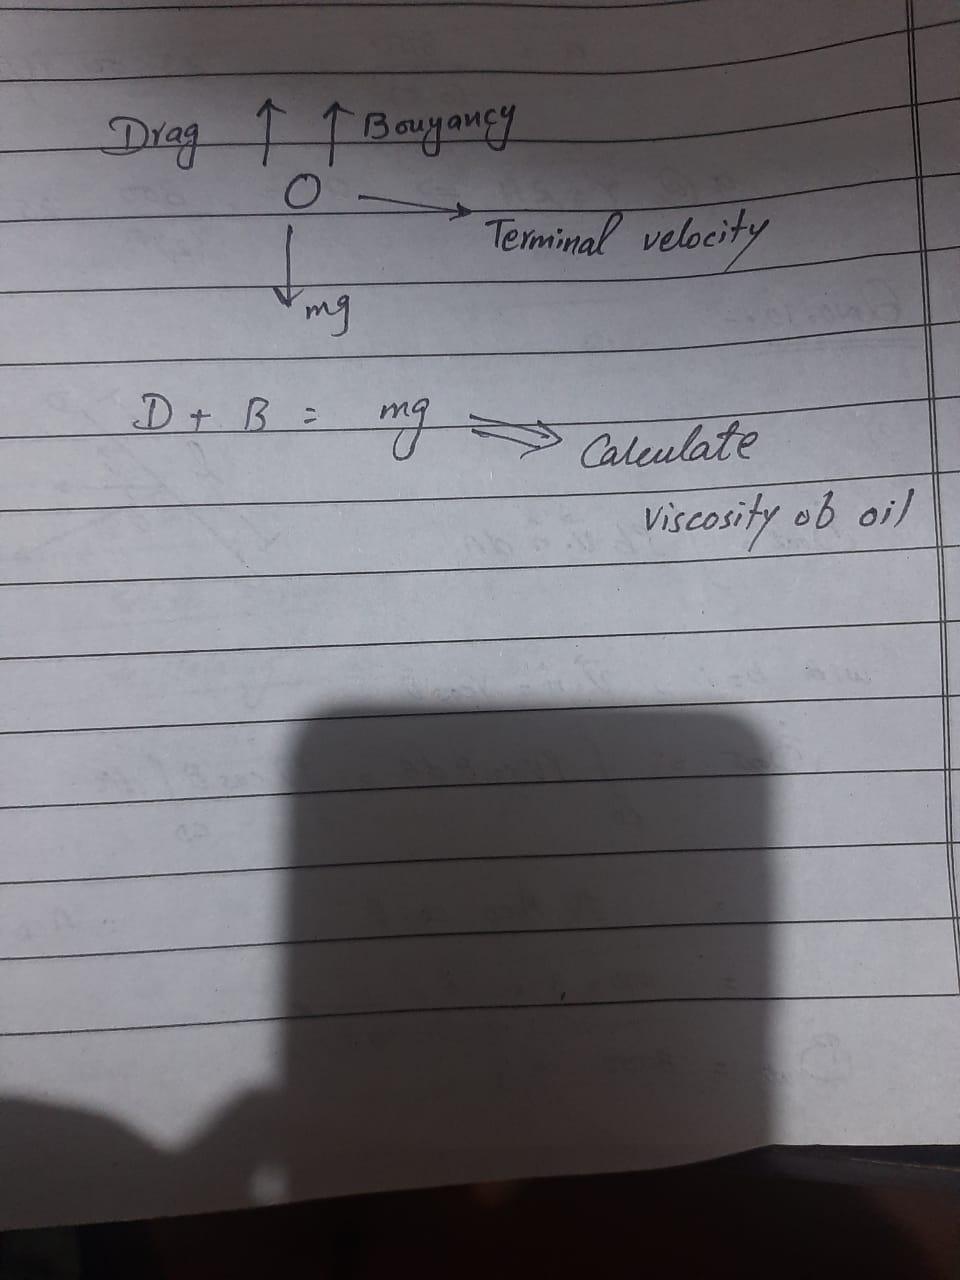 Drag ↑ ↑ Bouyancy
O → Terminal velocity
↓ mg
D + B = mg ⇒ Calculate
viscosity ob oil